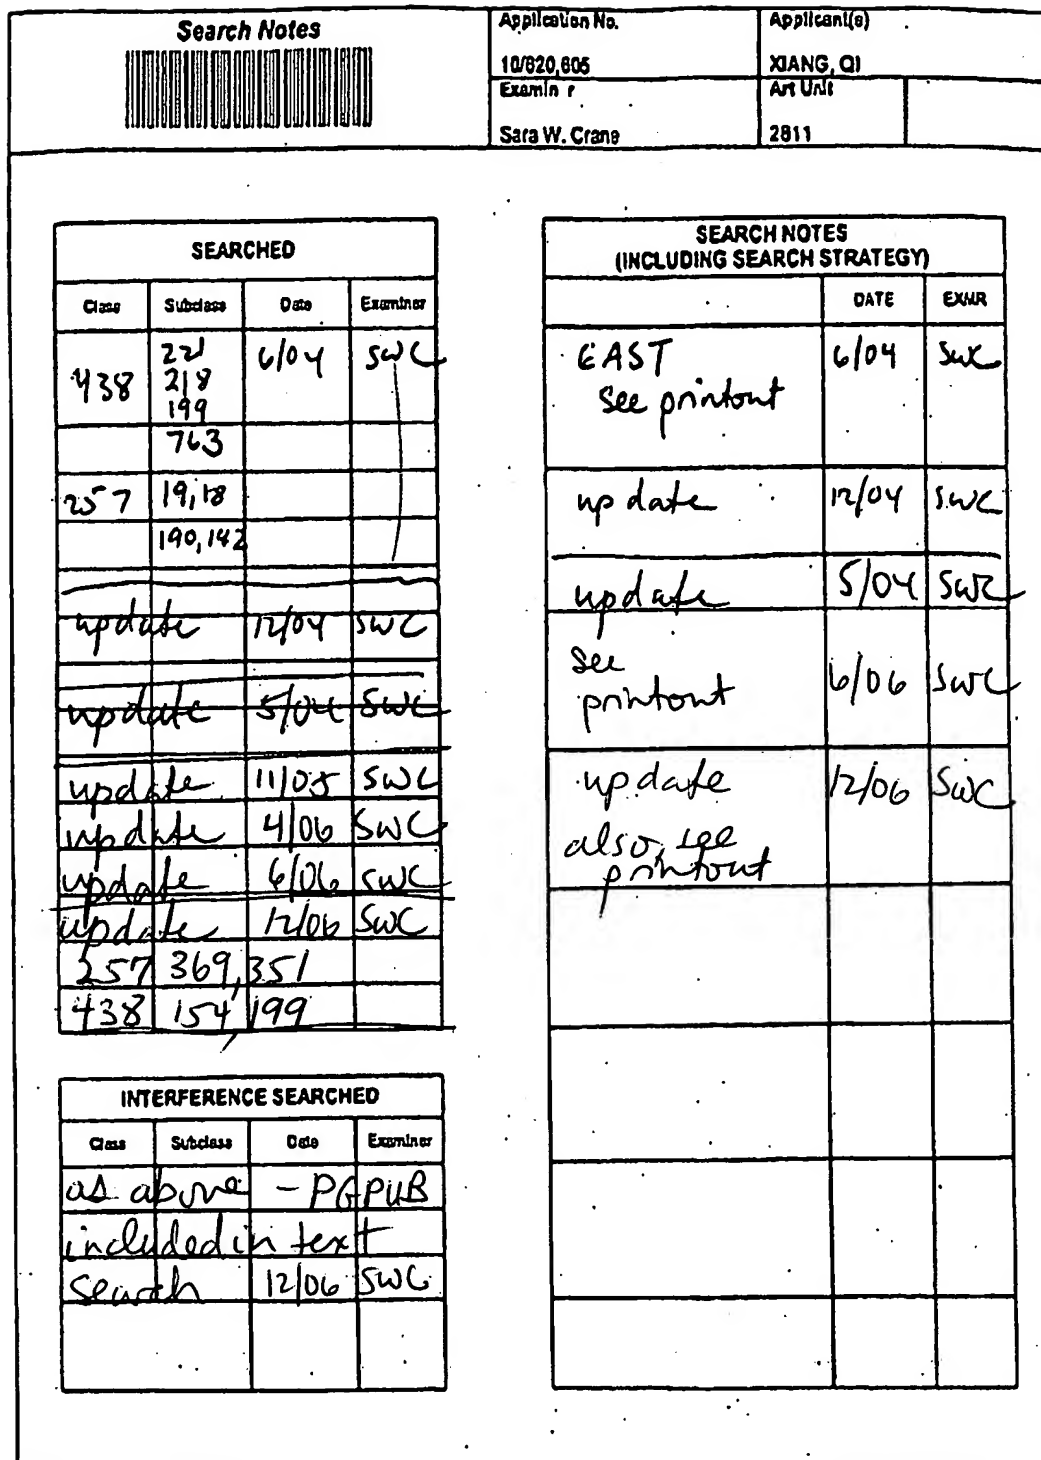 Search Notes
Application No.
Applicant(s)
10/820,605
XIANG, QI
Examin r
Art Unit
Sara W. Crane
2811
SEARCHED
Class Subclass Date Examiner
438 221 6/04 SWC
218
199
763
257 19,18
190,142
update 12/04 SWC
update 5/04 SWC
update 11/05 SWC
update 4/06 SWC
update 6/06 SWC
update 12/06 SWC
257 369,351
438 154,199
INTERFERENCE SEARCHED
Class Subclass Date Examiner
as above - PGPUB
included in text
search 12/06 SWC
SEARCH NOTES
(INCLUDING SEARCH STRATEGY)
DATE EXMR
EAST 6/04 SWC
see printout
update 12/04 SWC
update 5/04 SWC
see
printout 6/06 SWC
update 12/06 SWC
also, see
printout